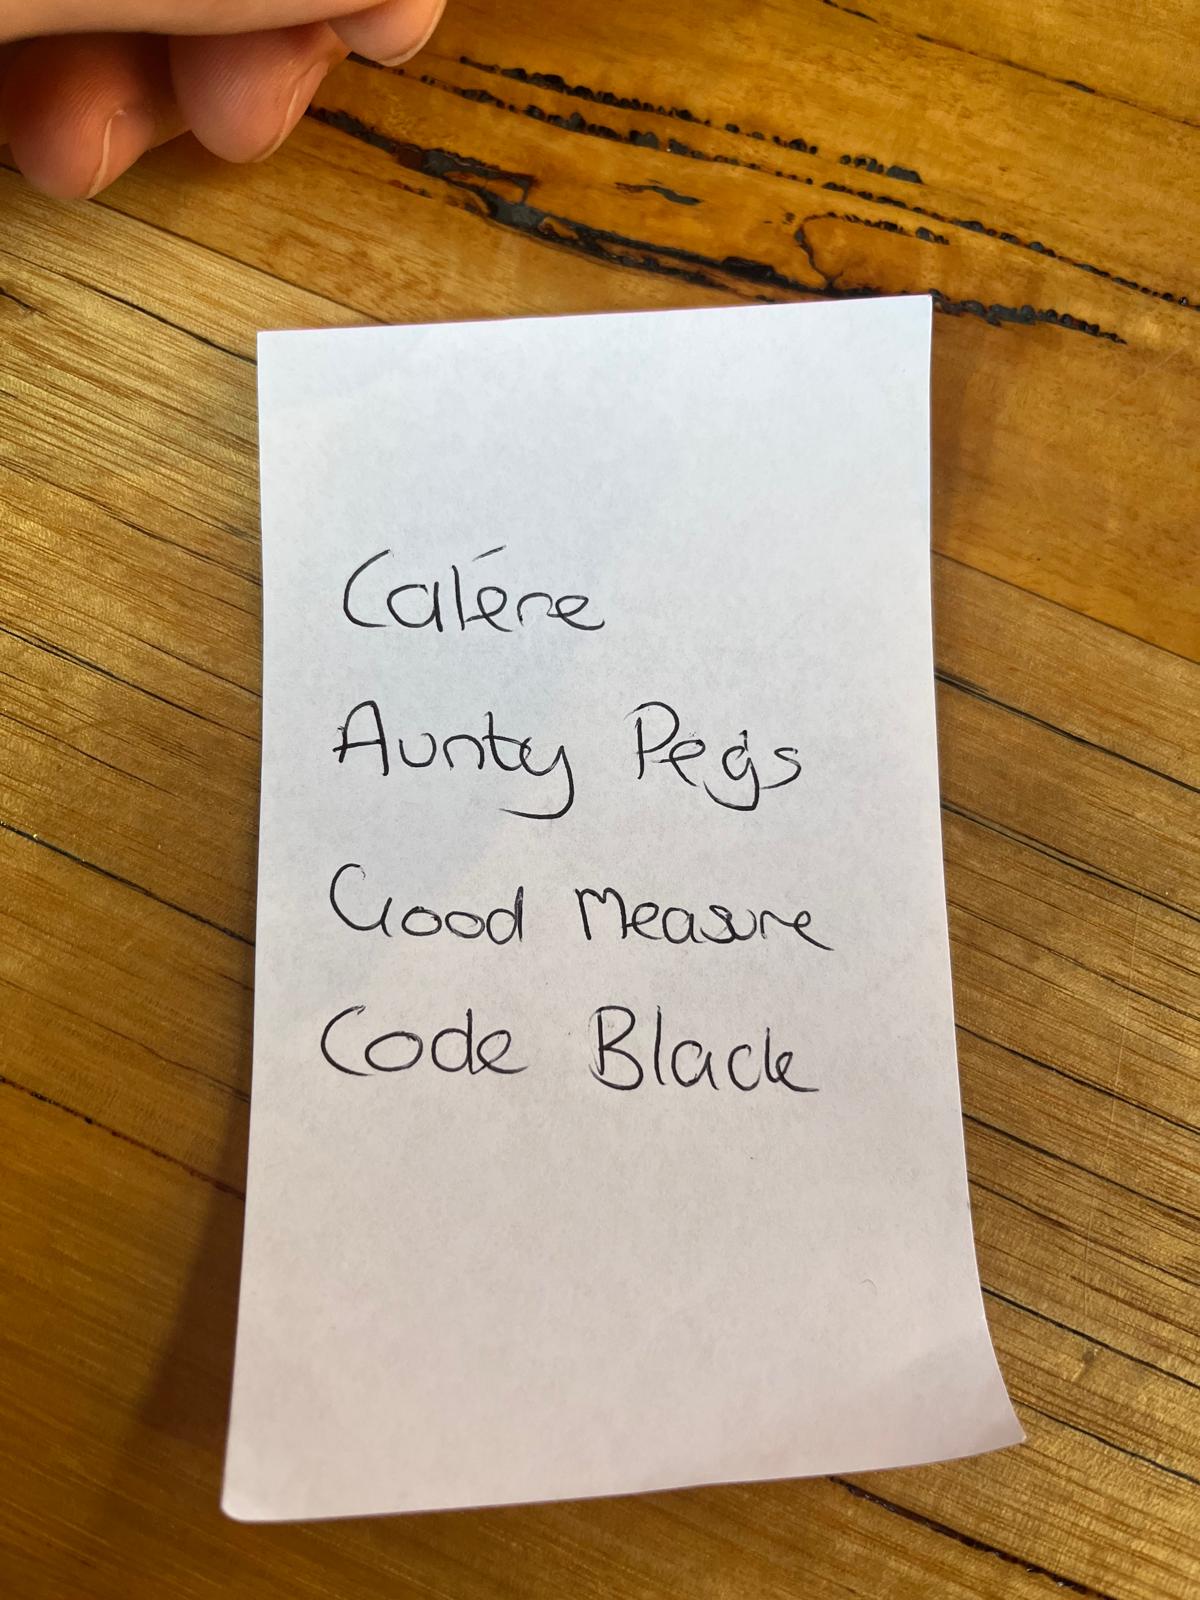 Calére
Aunty Pegs
Good Measure
Code Black